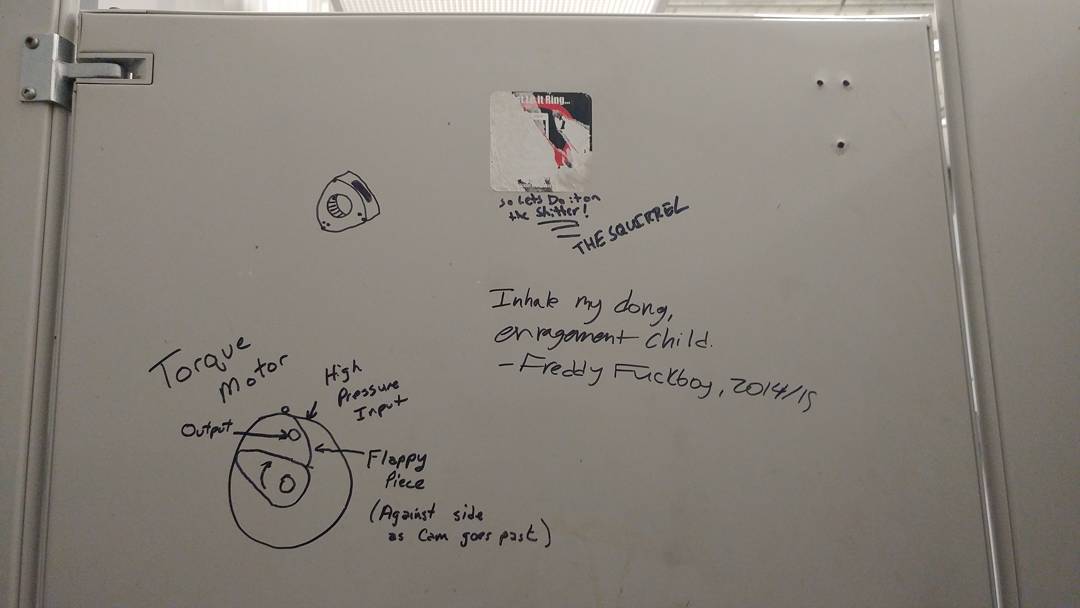 It Ring...
so Lets Do it on
the Shitter!
THE SQUIRREL
Inhale my dong,
enragement child.
-Freddy Fuckboy, 2014/15
Torque
Motor
High
Pressure
Input
Output
Flappy
Piece
(Against side
as Cam goes past)